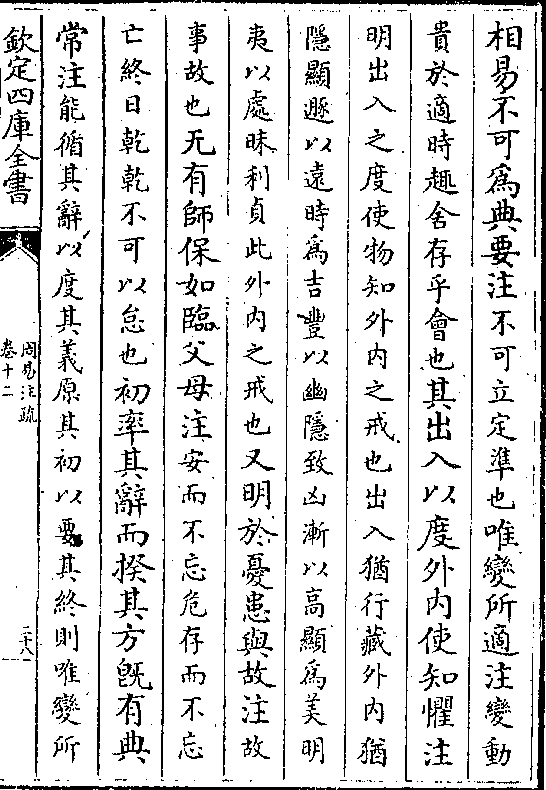 相易不可為典要注不可立定準也唯變所適注變動
貴於適時趣舍存乎會也其出入以度外内使知懼注
明出入之度使物知外内之戒也出入猶行藏外内猶
隱顯遯以遠時為吉豐以幽隱致凶漸以高顯為美明
夷以處昧利貞此外内之戒也又明於憂患與故注故
事故也无有師保如臨父母注安而不忘危存而不忘
亡終日乾乾不可以怠也初率其辭而揆其方旣有典
常注能循其辭以度其義原其初以要其終則唯變所
欽定四庫全書
周易注疏
卷十二
二十八